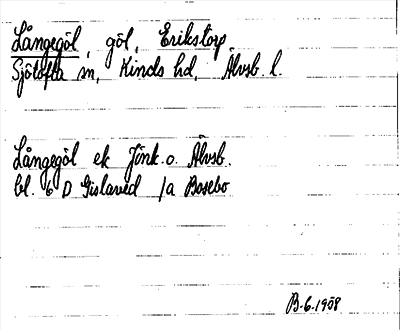 Långegöl, göl, Erikstorp
Sjötofta sn, Kinds hd, Älvsb. l.
Långegöl ek Jönk. o. Älvsb.
bl. 6 D Gislaved /a Bosebo
B-6.1958